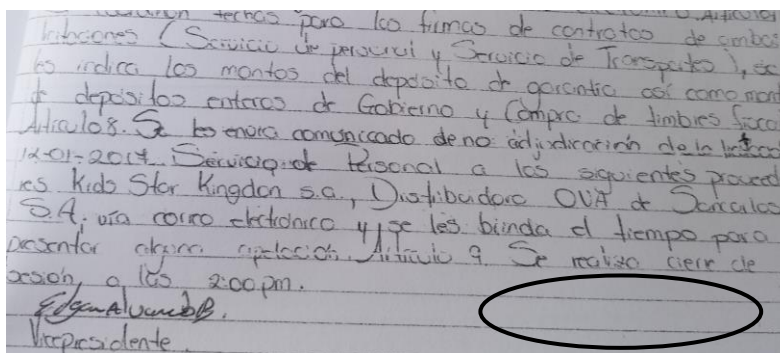 fechas para las firmas de contratos de ambas
(Servicio de personal y Servicio de Transportes), se
les indica los montos del deposito de garantia asi como mon
de depositos enteros de Gobierno y Compra de timbres
Articulo 8. Se les envia comunicado de no adjudicación de la
12-01-2017 Servicio de Personal a los siguientes proveed
res Kids Star Kingdon s.a, Distribuidora OVA de Sarcalos
S.A. via correo electronico y se les brinda el tiempo para
presentar alguna apelación. Articulo 9. Se realizo cierre de
sesión a las 2:00 pm.
Edgar Alvarado B.
Vicepresidente